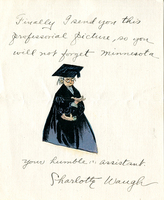 Finally I send you this
professional picture, so you
will not forget Minnesota
your humble assistant
Charlotte Waugh